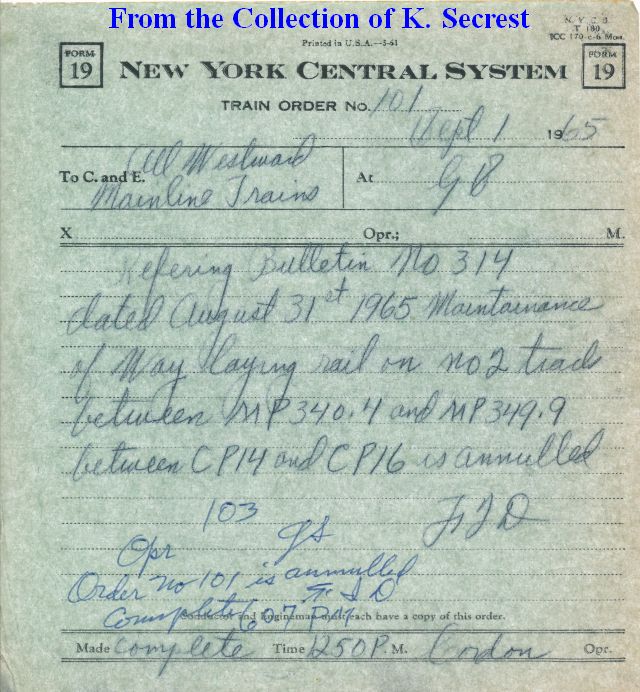 From the Collection of K. Secrest
N. Y. C. S.
T 180
ICC 170-c-6 Mos.
Printed in U.S.A.—5-61
FORM 19
NEW YORK CENTRAL SYSTEM
FORM 19
TRAIN ORDER No. 101
Sept 1 1965
To C. and E. All Westward Mainline Trains At GB
X Opr.; M.
Refering Bulletin No 314
dated August 31st 1965 Maintainance
of Way laying rail on no 2 track
between MP 340.4 and MP 349.9
between CP14 and CP16 is annulled
103
Opr GS
Order No 101 is annulled
Complete 607 PM
Conductor and Engineman must each have a copy of this order.
Made Complete Time 1250 P. M. Cordon Opr.